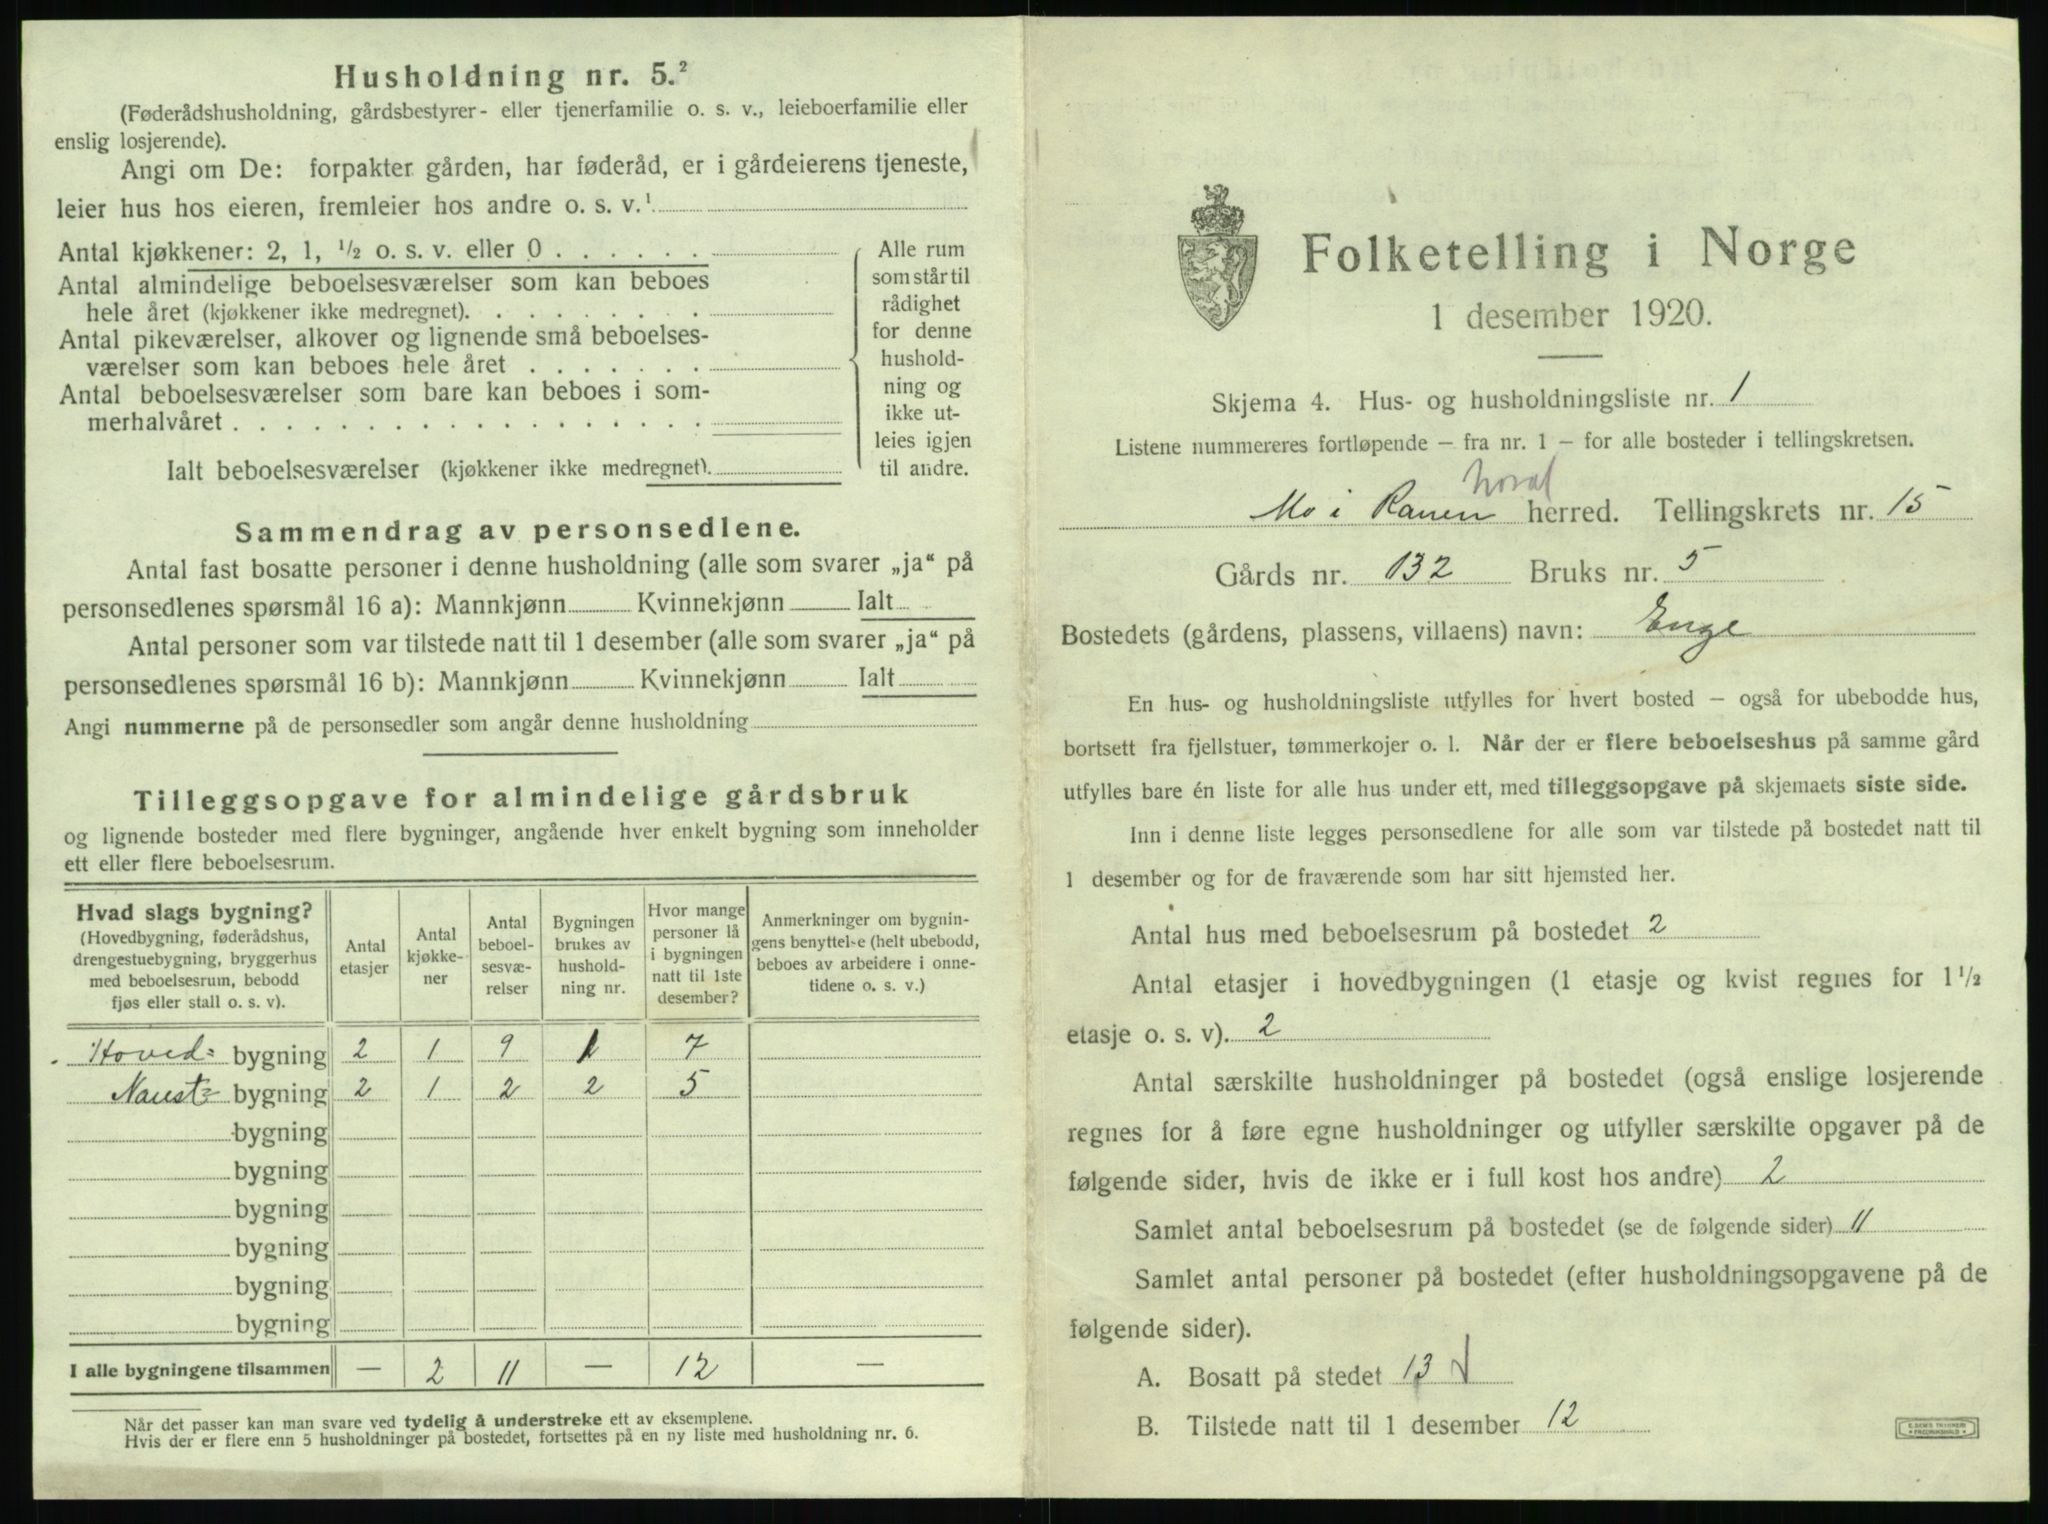 Husholdning nr. 5.²
(Føderådshusholdning, gårdsbestyrer- eller tjenerfamilie o. s. v., leieboerfamilie eller
enslig losjerende).
Angi om De: forpakter gården, har føderåd, er i gårdeierens tjeneste,
leier hus hos eieren, fremleier hos andre o. s. v.¹
Antal kjøkkener: 2, 1, ½ o. s. v. eller 0 . . . . . .
Antal almindelige beboelsesværelser som kan beboes
hele året (kjøkkener ikke medregnet). . . . . . . . .
Antal pikeværelser, alkover og lignende små beboelses-
værelser som kan beboes hele året . . . . . . .
Antal beboelsesværelser som bare kan beboes i som-
merhalvåret . . . . . . . . . . . . . . . . . .
Ialt beboelsesværelser (kjøkkener ikke medregnet).
Alle rum
som står til
rådighet
for denne
hushold-
ning og
ikke ut-
leies igjen
til andre.
Sammendrag av personsedlene.
Antal fast bosatte personer i denne husholdning (alle som svarer „ja“ på
personsedlenes spørsmål 16 a): Mannkjønn Kvinnekjønn Ialt
Antal personer som var tilstede natt til 1 desember (alle som svarer „ja“ på
personsedlenes spørsmål 16 b): Mannkjønn Kvinnekjønn Ialt
Angi nummerne på de personsedler som angår denne husholdning
Tilleggsopgave for almindelige gårdsbruk
og lignende bosteder med flere bygninger, angående hver enkelt bygning som inneholder
ett eller flere beboelsesrum.
Hvad slags bygning?
(Hovedbygning, føderådshus,
drengestuebygning, bryggerhus
med beboelsesrum, bebodd
fjøs eller stall o. s. v).
Antal
etasjer
Antal
kjøkke-
ner
Antal
beboel-
sesvæ-
relser
Bygningen
brukes av
hushold-
ning nr.
Hvor mange
personer lå
i bygningen
natt til 1ste
desember?
Anmerkninger om bygnin-
gens benyttelse (helt ubebodd,
beboes av arbeidere i onne-
tidene o. s. v.)
Hoved= bygning 2 1 9 1 7
Naust= bygning 2 1 2 2 5
bygning
bygning
bygning
bygning
bygning
bygning
I alle bygningene tilsammen — 2 11 — 12 —
Når det passer kan man svare ved tydelig å understreke ett av eksemplene.
Hvis der er flere enn 5 husholdninger på bostedet, fortsettes på en ny liste med husholdning nr. 6.
Folketelling i Norge
1 desember 1920.
Skjema 4. Hus- og husholdningsliste nr. 1
Listene nummereres fortløpende — fra nr. 1 — for alle bosteder i tellingskretsen.
Nord
Mo i Ranen herred. Tellingskrets nr. 15
Gårds nr. 132 Bruks nr. 5
Bostedets (gårdens, plassens, villaens) navn: Enge
En hus- og husholdningsliste utfylles for hvert bosted — også for ubebodde hus,
bortsett fra fjellstuer, tømmerkojer o. l. Når der er flere beboelseshus på samme gård
utfylles bare én liste for alle hus under ett, med tilleggsopgave på skjemaets siste side.
Inn i denne liste legges personsedlene for alle som var tilstede på bostedet natt til
1 desember og for de fraværende som har sitt hjemsted her.
Antal hus med beboelsesrum på bostedet 2
Antal etasjer i hovedbygningen (1 etasje og kvist regnes for 1 ½
etasje o. s. v). 2
Antal særskilte husholdninger på bostedet (også enslige losjerende
regnes for å føre egne husholdninger og utfyller særskilte opgaver på de
følgende sider, hvis de ikke er i full kost hos andre) 2
Samlet antal beboelsesrum på bostedet (se de følgende sider) 11
Samlet antal personer på bostedet (efter husholdningsopgavene på de
følgende sider).
A. Bosatt på stedet 13
B. Tilstede natt til 1 desember 12